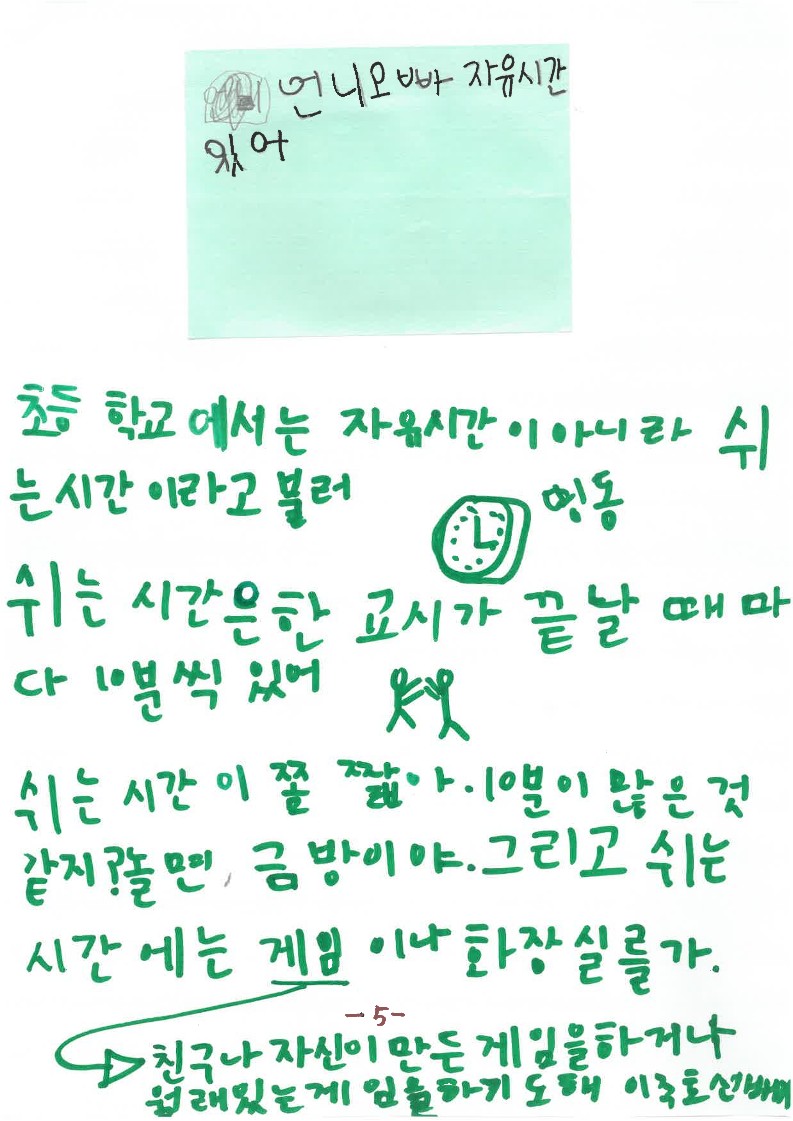 언니오빠 자유시간
있어
초등 학교에서는 자유시간이아니라 쉬
는시간이라고 불러
이동
쉬는 시간은한 교시가 끝날 때마
다 10분씩 있어
쉬는 시간이 쫄 짧아. 10분이 많은 것
같지? 놀면, 금방이야. 그리고 쉬는
시간에는 게임 이나 화장실를가.
-5-
친구나 자신이만든게임을하거나
원래있는게임을하기도해